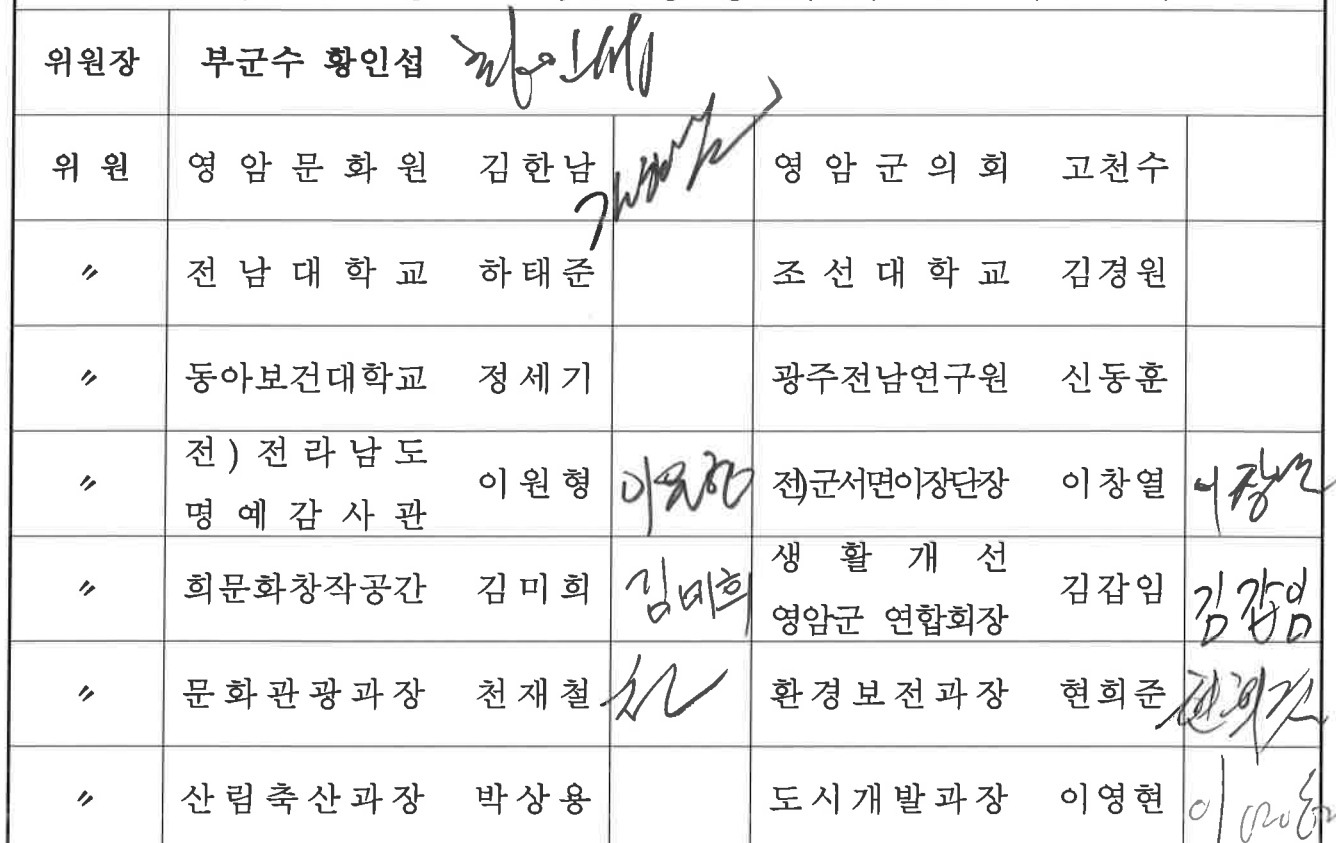 위원장 부군수 황인섭 황인섭
위 원 영 암 문 화 원 김한남 김한남 영 암 군 의 회 고천수
〃 전 남 대 학 교 하태준 조 선 대 학 교 김경원
〃 동아보건대학교 정세기 광주전남연구원 신동훈
전) 전 라 남 도
〃 이원형 이원형 전)군서면이장단장 이창열 이창열
명 예 감 사 관
생 활 개 선
〃 희문화창작공간 김미희 김미희 김갑임 김갑임
영암군 연합회장
〃 문화관광과장 천재철 환경보전과장 현희준 현희준
〃 산림축산과장 박상용 도시개발과장 이영현 이영현